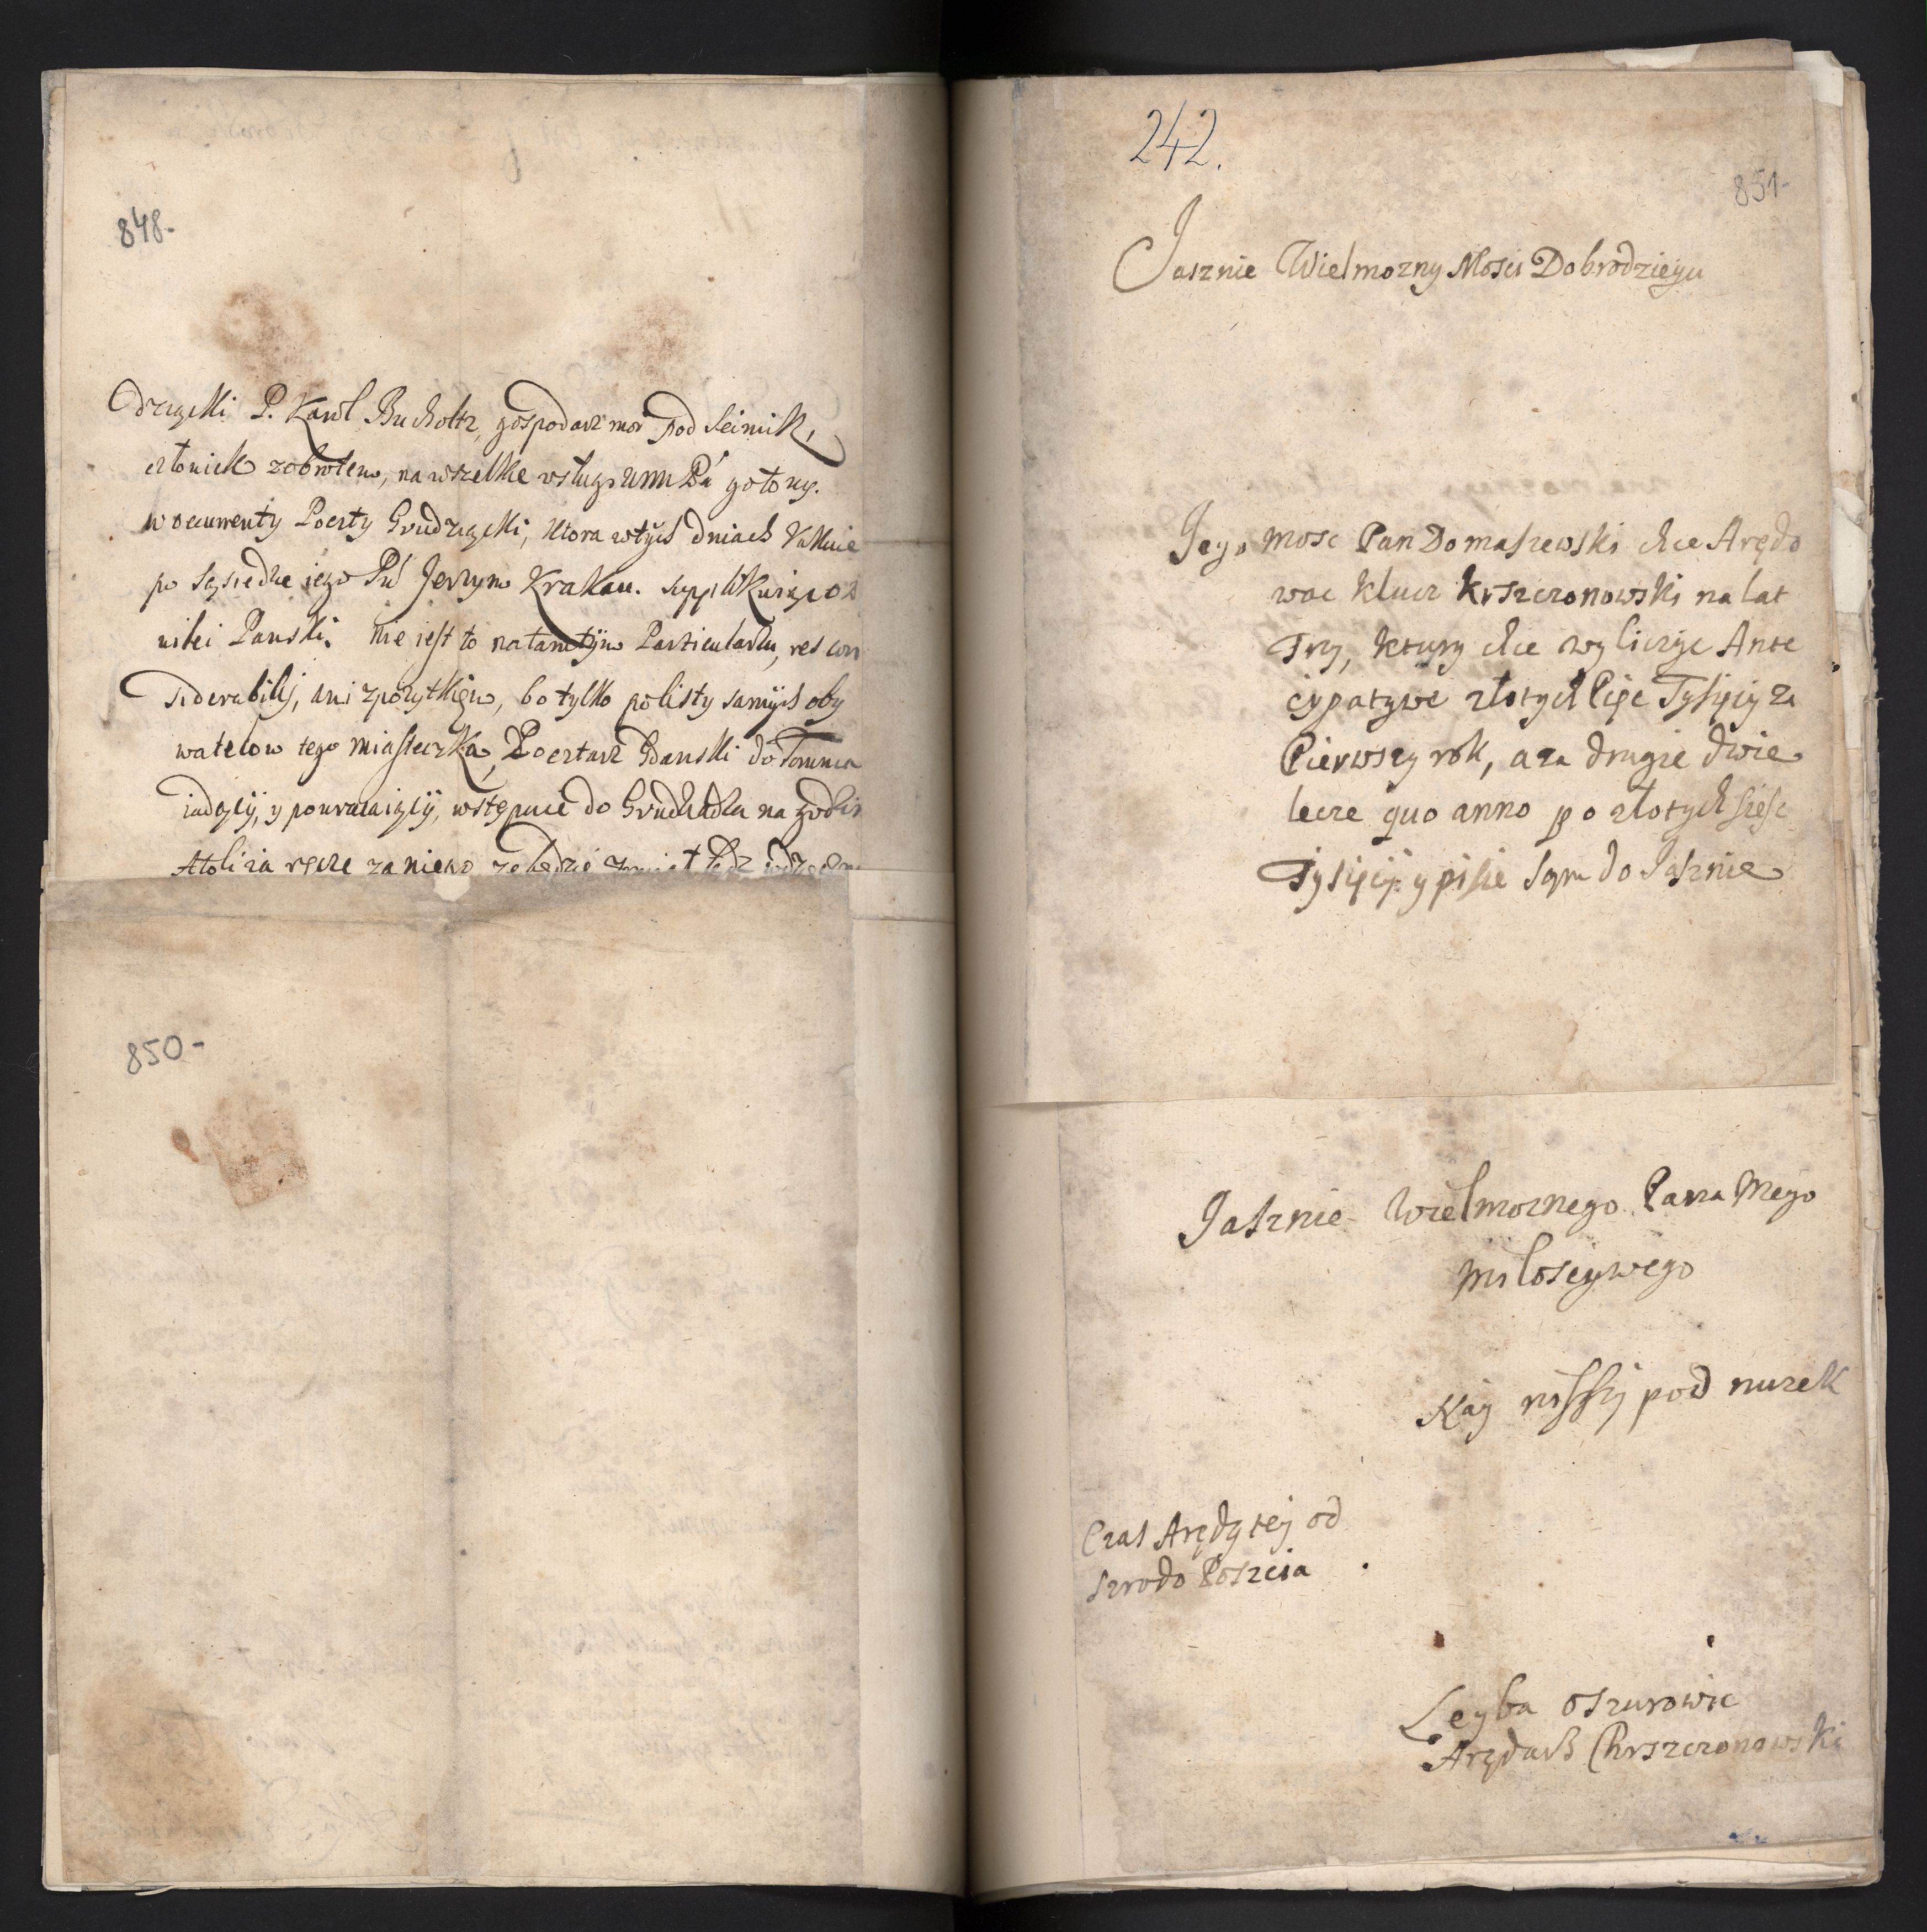 848-
Odrzyckÿ P. Karol Bucholtz, gospodarz moy pod Seimik,
człowiek zobrotem, na wszelke wsługi gotowy.
wocurrenty Poczty Grudzyckÿ, ktora wtych dniach
po Sęsiedzie iego Pu Jerzym Krakau. supplikuię o
Panski. Nie iest to na tamtÿm Particularku, res con
siderabilis, ani zpożytkiem, bo tylko po listy samych oby
watelow tego miasteczka, Pocztarz Gdanski do Torunia
iadący, y powracaiący, wstępuie do Grudziądza na godzin
Atoli ia ręcze za niego ze będzie
850-
242.
851-
Jasznie Wielmozny Mosci Dobrodzieyu
Jego Mosc Pan Domaszewski chce Arędo
wac klucz krszczonowski na lat
Trzy, ktury chce wyliczyc Ante
cypatywe złotych Pięc Tysięcy za
Pierwszy rok, a za drugie dwie
lecze quo anno po złotych szesc
Tysięcy y pisze sam do Jasznie
Jasznie Wielmoznego Pana Mego
Miloscywego
nisszy pod nuzek
Czas Arędy tey od
szrodo Poszcia
Leyba Oszurowic
Arędarz Chrszczonowski